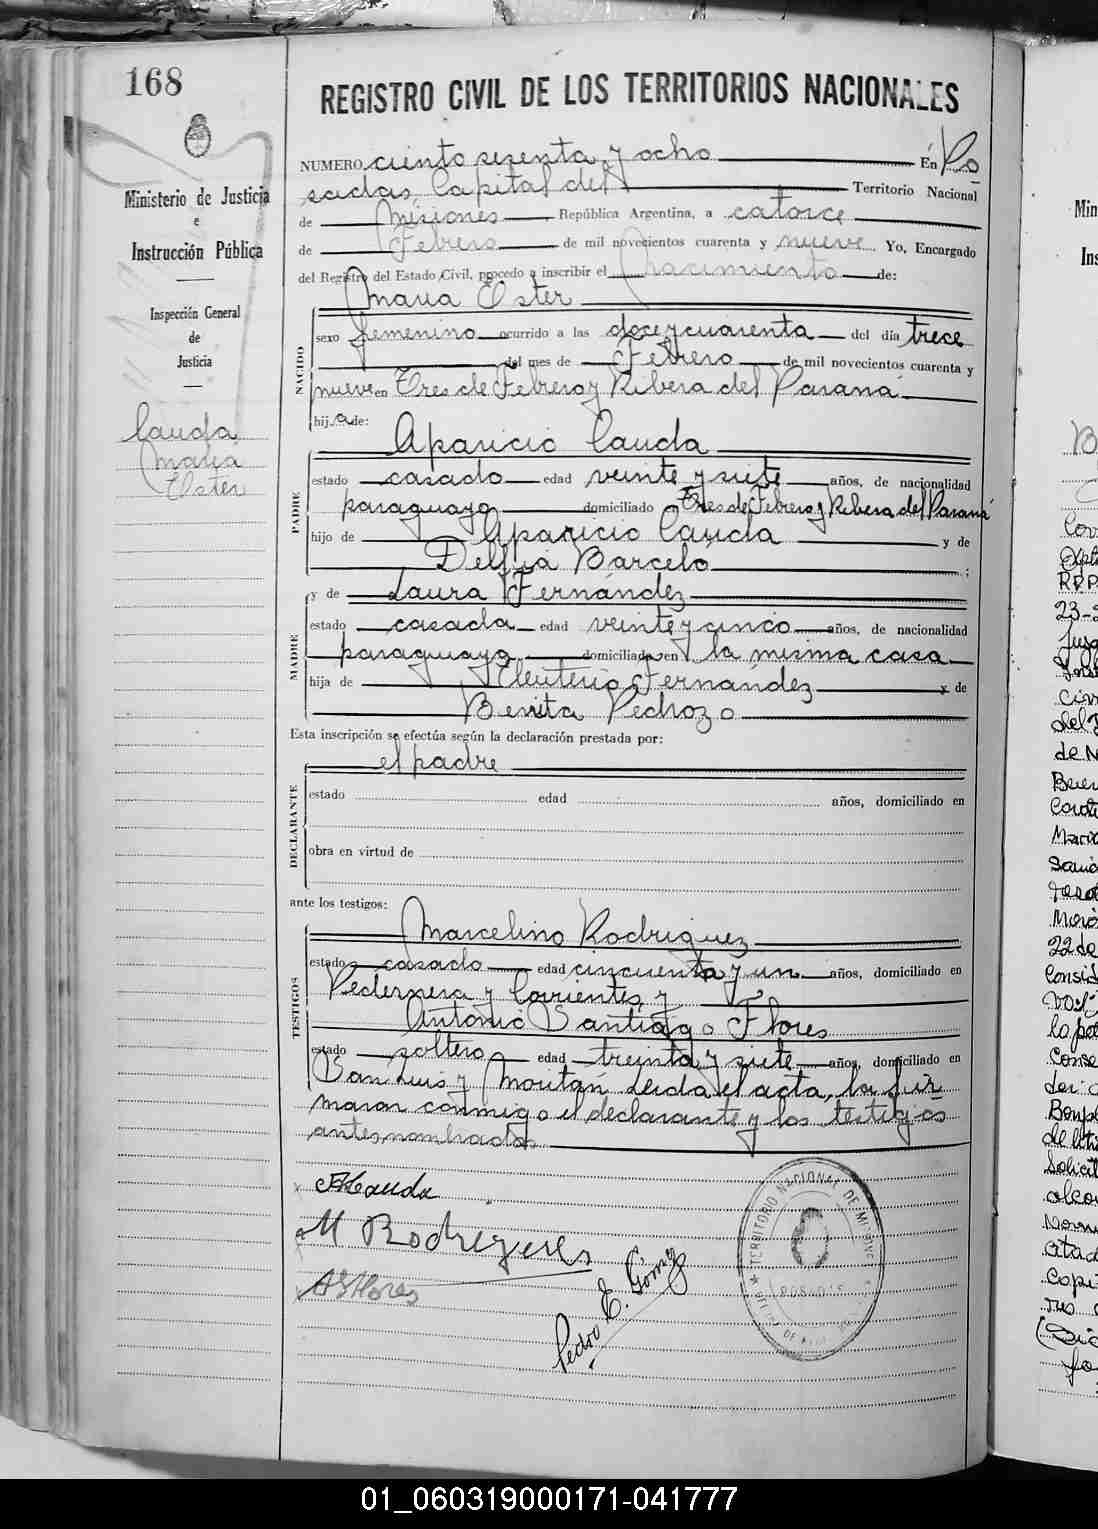 168
REGISTRO CIVIL DE LOS TERRITORIOS NACIONALES
Ministerio de Justicia
e
Instrucción Pública
Inspección General
de
Justicia
Cauda
Maria
Ester
NUMERO ciento sesenta y ocho En Po
sadas, Capital del Territorio Nacional
de Misiones República Argentina, a catorce
de Febrero de mil novecientos cuarenta y nueve Yo, Encargado
del Registro del Estado Civil, procedo a inscribir el Nacimiento de:
Maria Ester
NACIDO
sexo femenino ocurrido a las doce y cuarenta del día trece
del mes de Febrero de mil novecientos cuarenta y
nueve en Tres de Febrero y Ribera del Paraná
hija de:
Aparicio Cauda
PADRE
estado casado edad veinte y siete años, de nacionalidad
paraguayo domiciliado Tres de Febrero y Ribera del Paraná
hijo de Aparicio Cauda y de
Delfia Barceló ;
y de Laura Fernández
MADRE
estado casada edad veinte y cinco años, de nacionalidad
paraguaya domiciliada en la misma casa
hija de Eleuterio Fernández y de
Benita Pedrozo
Esta inscripción se efectúa según la declaración prestada por:
el padre
DECLARANTE
estado edad años, domiciliado en
obra en virtud de
ante los testigos:
Marcelino Rodriguez
TESTIGOS
estado casado edad cincuenta y un años, domiciliado en
Pedernera y Corrientes y
Antonio Santiago Flores
estado soltero edad treinta y siete años, domiciliado en
San Luis y Moritán Leida el acta, la fir
maron conmigo el declarante y los testigos
antes nombrados
M Rodrigues
ASFlores
Pedro E. Gómez
TERRITORIO NACIONAL DE MISIONES
POSADAS
01_060319000171-041777